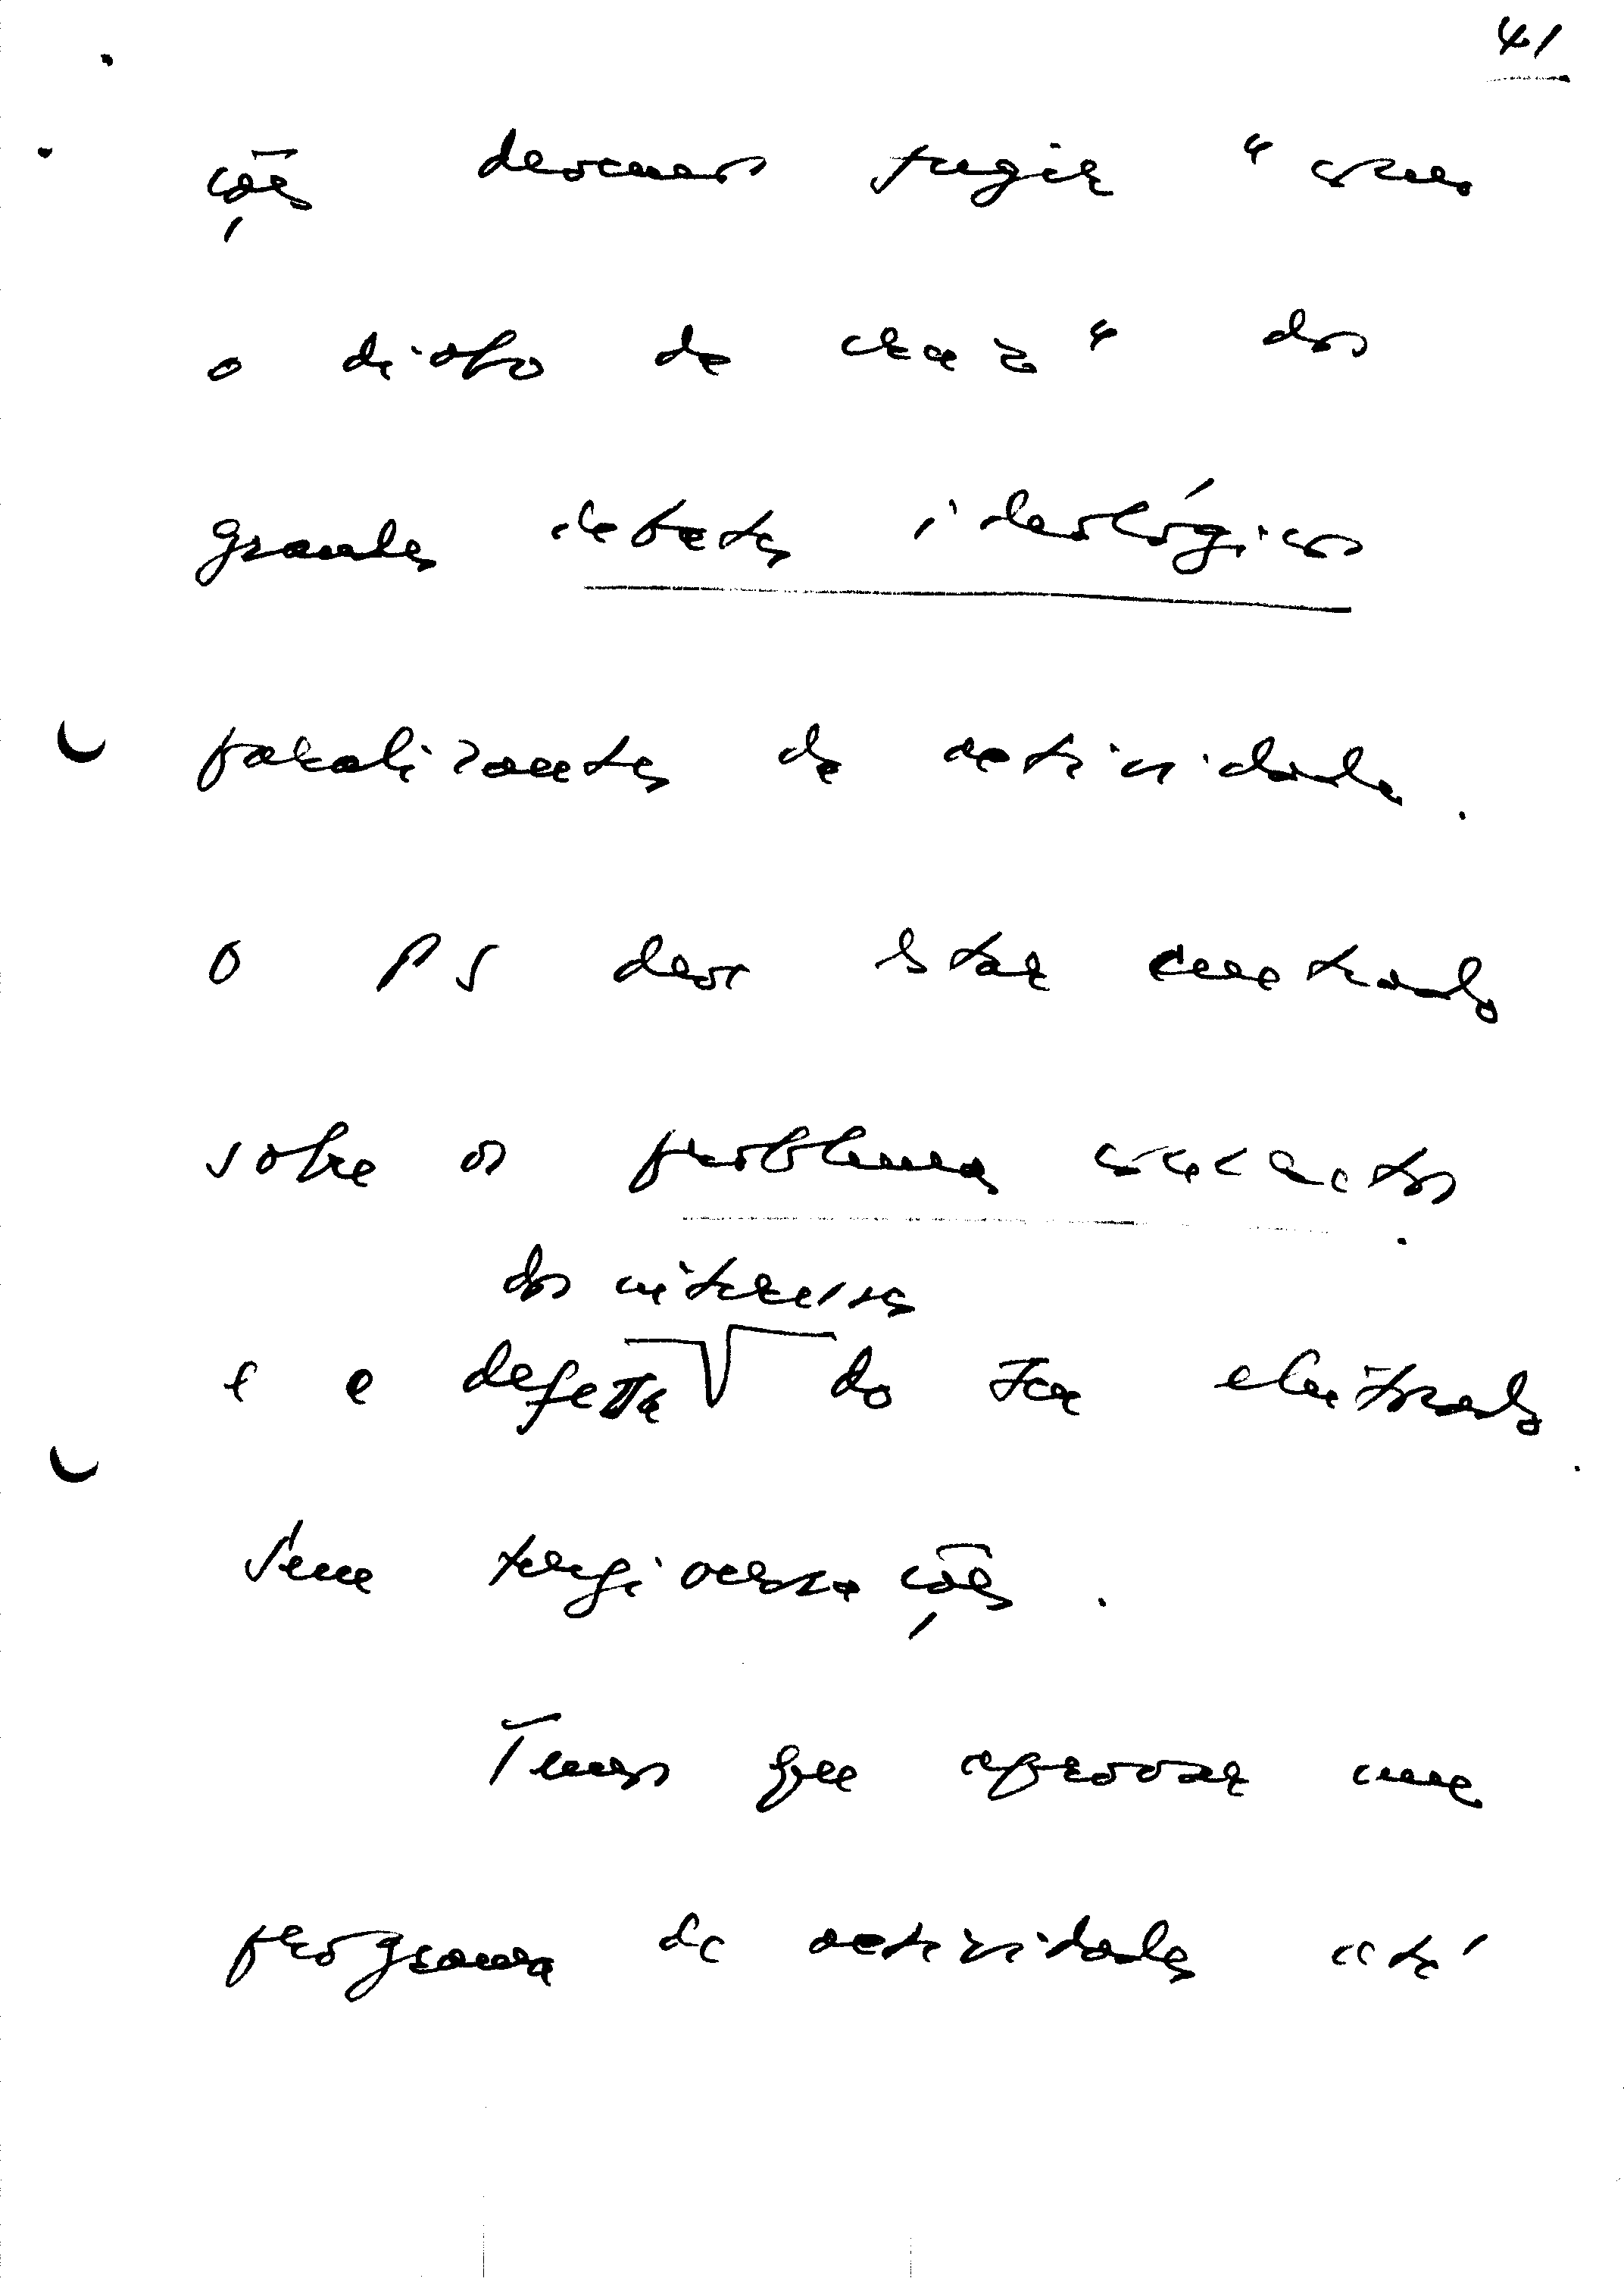 41
ções devemos fugir "como
o diabo da cruz" dos
grandes debates ideológicos
paralizantes da actividade.
O PS deve estar centrado
sobre os problemas concretos
dos interesses
e a defesa do seu eleitorado
sem tergiversações.
Temos que aprovar um
programa de actividades até